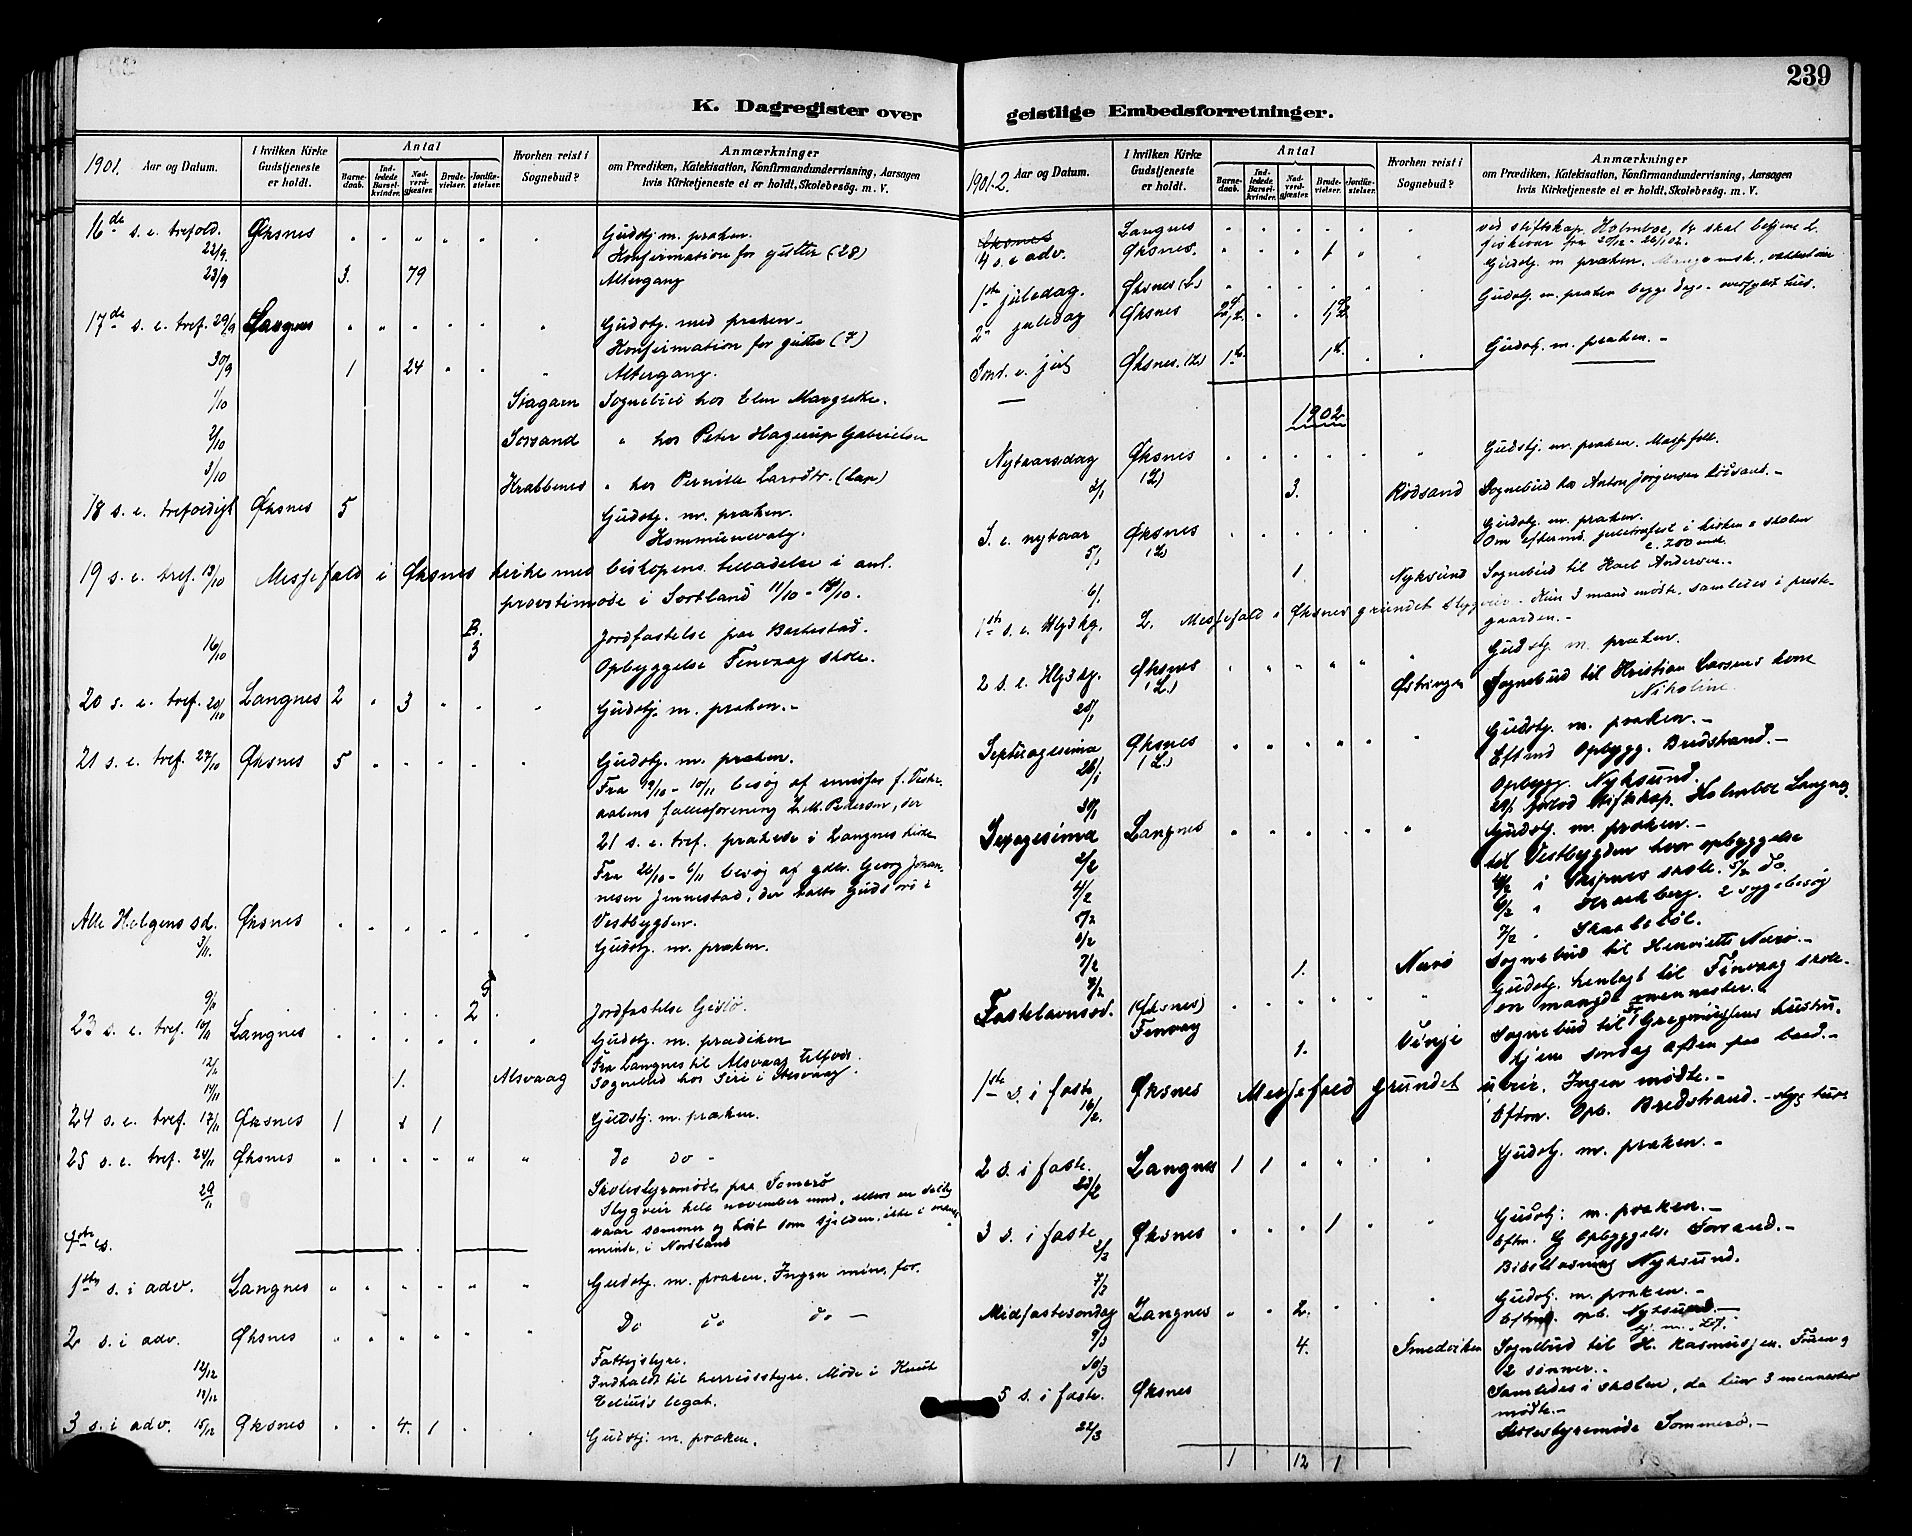 239
K. Dagregister over geistlige Embedsforretninger.
1901. Aar og Datum. I hvilken Kirke Gudstjeneste er holdt. Antal Barnedaab. Indledede Barselkvinder. Nadverdgjæster. Brudevielser. Jordfæstelser. Hvorhen reist i Sognebud? Anmærkninger om Prædiken, Katekisation, Konfirmandundervisning, Aarsagen hvis Kirketjeneste ei er holdt, Skolebesøg. m. V.
16de s. e. trefold. Øksnes " " " " " " Gudstj. m. præken.
22/9. Konfirmation for gutter (28)
23/9 3. 79 Altergang
17de s. e. tref. 29/9 Langnes " " " " " " Gudstj. med præken.
Konfirmation for gutter (7)
30/9 1 24 " " " Altergang.
1/10 Stagarn Sognebud hos Elen Margrethe.
2/10 Sørsand " hos Peter Hagerup Gabrielsen
3/10 Krabbenes " hos Pernille Larsdtr. (Lap)
18 s. e. trefoldigh Øksnes 5 Gudstj. m. præken.
Kommunevalg.
19 s. e. tref. 13/10 Messefald i Øksnes kirke med biskopens tilladelse i anl.
provstimøde i Sortland 11/10 - 14/10.
B.
16/10 3 Jordfæstelse paa Barkestad.
Opbyggelse Finvaag skole.
20 s. e. tref. 20/10 Langnes 2 " 3 " " " Gudstj. m. præken.-
21 s. e. tref. 27/10 Øksnes 5 " " " " " Gudstj. m. præken.
besøg af emissær f. Vester-
aalens fællesforening L. M. Pedersen, der
21 s. e. tref. prækede i Langnes kirke
Fra 26/10 - 6/11 besøg af gdbr. Georg Johan-
nesen Jennestad, der holdt Guds ord i
Vestbygden.
Alle Helgens sd. 3/11. Øksnes " " " " " " Gudstj. m. præken.
9/11 2 Jordfæstelse Gislø.
23 s. e. tref. 10/11 Langnes " " " " " " Gudstj. m. prædiken
Fra Langnes til Alsvaag
1. Alsvaag Sognebud hos Siri i Alsvaag.
24 s. e. tref. 17/11 Øksnes 1 1 Gudstj. m. præken.
25 s. e. tref. 24/11 Øksnes " " " " " " do do -
29/11 Skolestyremøde paa Somerø
Stygveir hele november mnd,
vaar sommer og høst som sjelden, ikke i
minde, i Nordland
1ste s. i adv. Langnes " " " " " " Gudstj. m. præken. Ingen
2 s. i adv. Øksnes " " " " " " Do do do -
12/12 Fattigstyre.
Indkaldt til herredsstyre. Møde i Knut
legat.
3 s. i adv. 15/12 Øksnes " " 4. 1 " " Gudstj. m. præken.
1901-2. Aar og Datum. I hvilken Kirke Gudstjeneste er holdt. Antal Barnedaab. Indledede Barselkvinder. Nadverdgjæster. Brudevielser. Jordfæstelser. Hvorhen reist i Sognebud? Anmærkninger om Prædiken, Katekisation, Konfirmandundervisning, Aarsagen hvis Kirketjeneste ei er holdt, Skolebesøg. m. V.
Øksnes Langnes " " " " " " ved stiftskap. Holmboe, der skal betjene L.
4 s. i adv. Øksnes. " " " 1 " " fiskevær fra 20/12 -
Gudstj. m præken.
1ste juledag. Øksnes (L.) " " " " " "
2en juledag Øksnes Gudstj. m. præken begge dage.
Sønd. e. jul Øksnes. (L) 1 1 " " Gudstj. m. præken.-
1902
Nytaarsdag Øksnes (L) " " " " " Gudstj. m. præken. Masse folk.
2/1 3. Rødsand Sognebud hos Anton Jørgensen Rødsand.-
S. e. nytaar 5/1 Øksnes (L) " " " " " " Gudstj. m. præken.
Om efterm. juletræfest i kirken
6/1 1. Nyksund Sognebud til Karl Andersen.-
1ste s. e. Hlg3kg. L. Messefald i Øksnes grundet stygveir. Kun 3 mand mødte, samledes i præste-
gaarden.-
2 s. e. Hlg3kg. Øksnes (L) " " " " " " Gudstj. m. præken.
20/1 Østringen Sognebud til Kristian Larsens kone
Nikoline.
Septuagesima 26/1 Øksnes (L.) " " " " " " Gudstj. m. præken.-
Eftmd Opbygg. Bredstrand.-
Opbygg. Nyksund.
29/1 stiftskap. Holmboe Langnes
Sexagesima 2/2 Langnes " " " " " " Gudstj. m. præken.-
til Vestbygden hvor opbyggelse
4/2 i Skipnes skole. 5/2 Do.
6/2 " 2 sygebesøg
7/2 "
7/2 1. Nærø Sognebud til Henriette Nærø.-
Fastelavnssd. (Øksnes) Finvaag " " " " " " Gudstj. henlagt til Finvaag skole.-
en mængde mennesker.
1. Vinje Sognebud til Gregoriussens hustru.
hjem søndag aften paa baad.-
1ste s. i faste 16/2. Øksnes Messefald grundet uveir. Ingen mødte.-
Eftm. Opb. Bredstrand.-
2 s. i faste. 23/2 Langnes 1 1 " " " " Gudstj. m. præken.-
3 s. i faste 2/3 Øksnes 1 " " Gudstj. m. præken.-
Eftm. Opbyggelse Sørsand.-
7/3 Bibellæsning Nyksund.
Midfastesøndag 9/3 Langnes " " 2. " " " Gudstj. m. præken.-
Eftm. opb. Nyksund.-
10/3 4. Smedviken Sognebud til H. Rasmussen, og
2 sønner..
5 s. i faste. Øksnes Samledes i skolen, da kun 3 mennesker
mødte.-
22/3 Skolestyremøde Sommerø.-
1 12 1